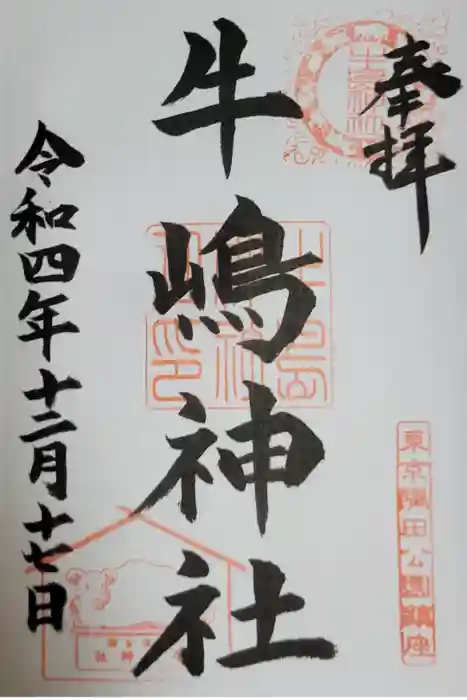 奉拝
東京隅田公園鎮座
牛嶋神社
令和四年十二月十七日